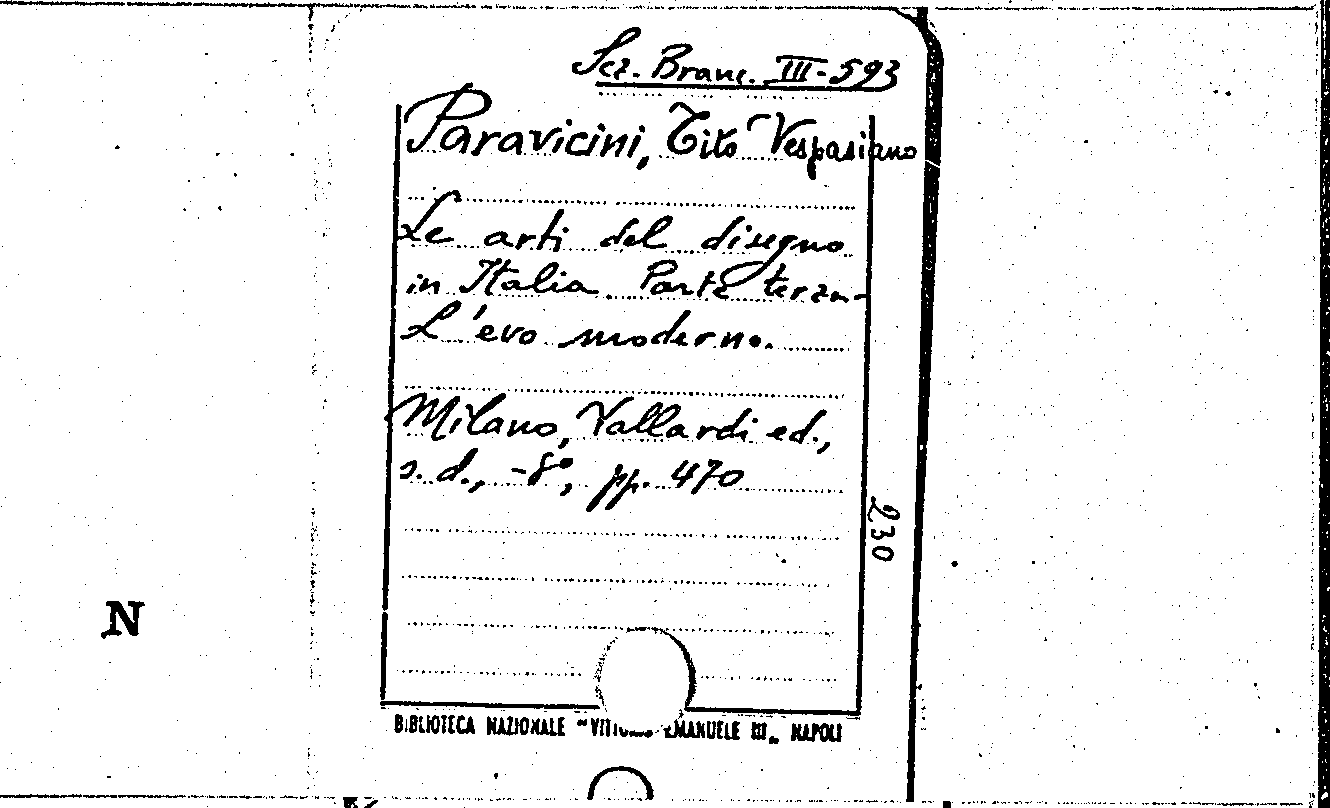 Sez. Branc. III-593
Paravicini, Tito Vespasiano
Le arti del disegno
in Italia. Parte terza-
L'evo moderno.
Milano, Vallardi ed.,
s. d., -8°, pp. 470
230
N
BIBLIOTECA NAZIONALE "VITTORIO EMANUELE III„ NAPOLI